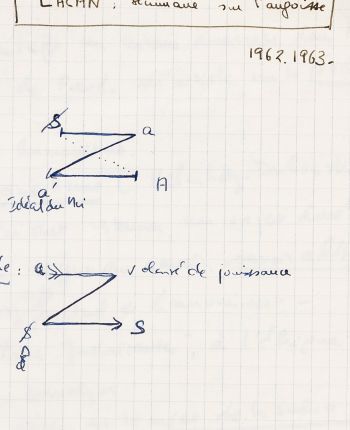 LACAN : séminaire sur l'angoisse
1962.1963-
$ a
a' A
Idéal du Moi
: a Volonté de jouissance
$ S